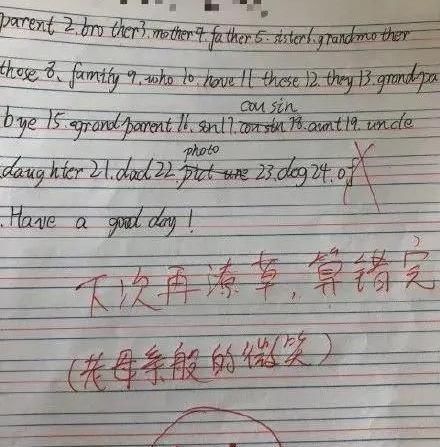 parent 2. brother 3. mother 4. father 5. sister 6. grandmother
those 8. family 9. who 10. have 11 these 12. they 13. grandpa
cousin
bye 15. grandparent 16. son 17. cousin 18. aunt 19. uncle
photo
daughter 21. dad 22 picture 23. dog 24. of
. Have a good day!
下次再潦草，算错完
(老母亲般的微笑)